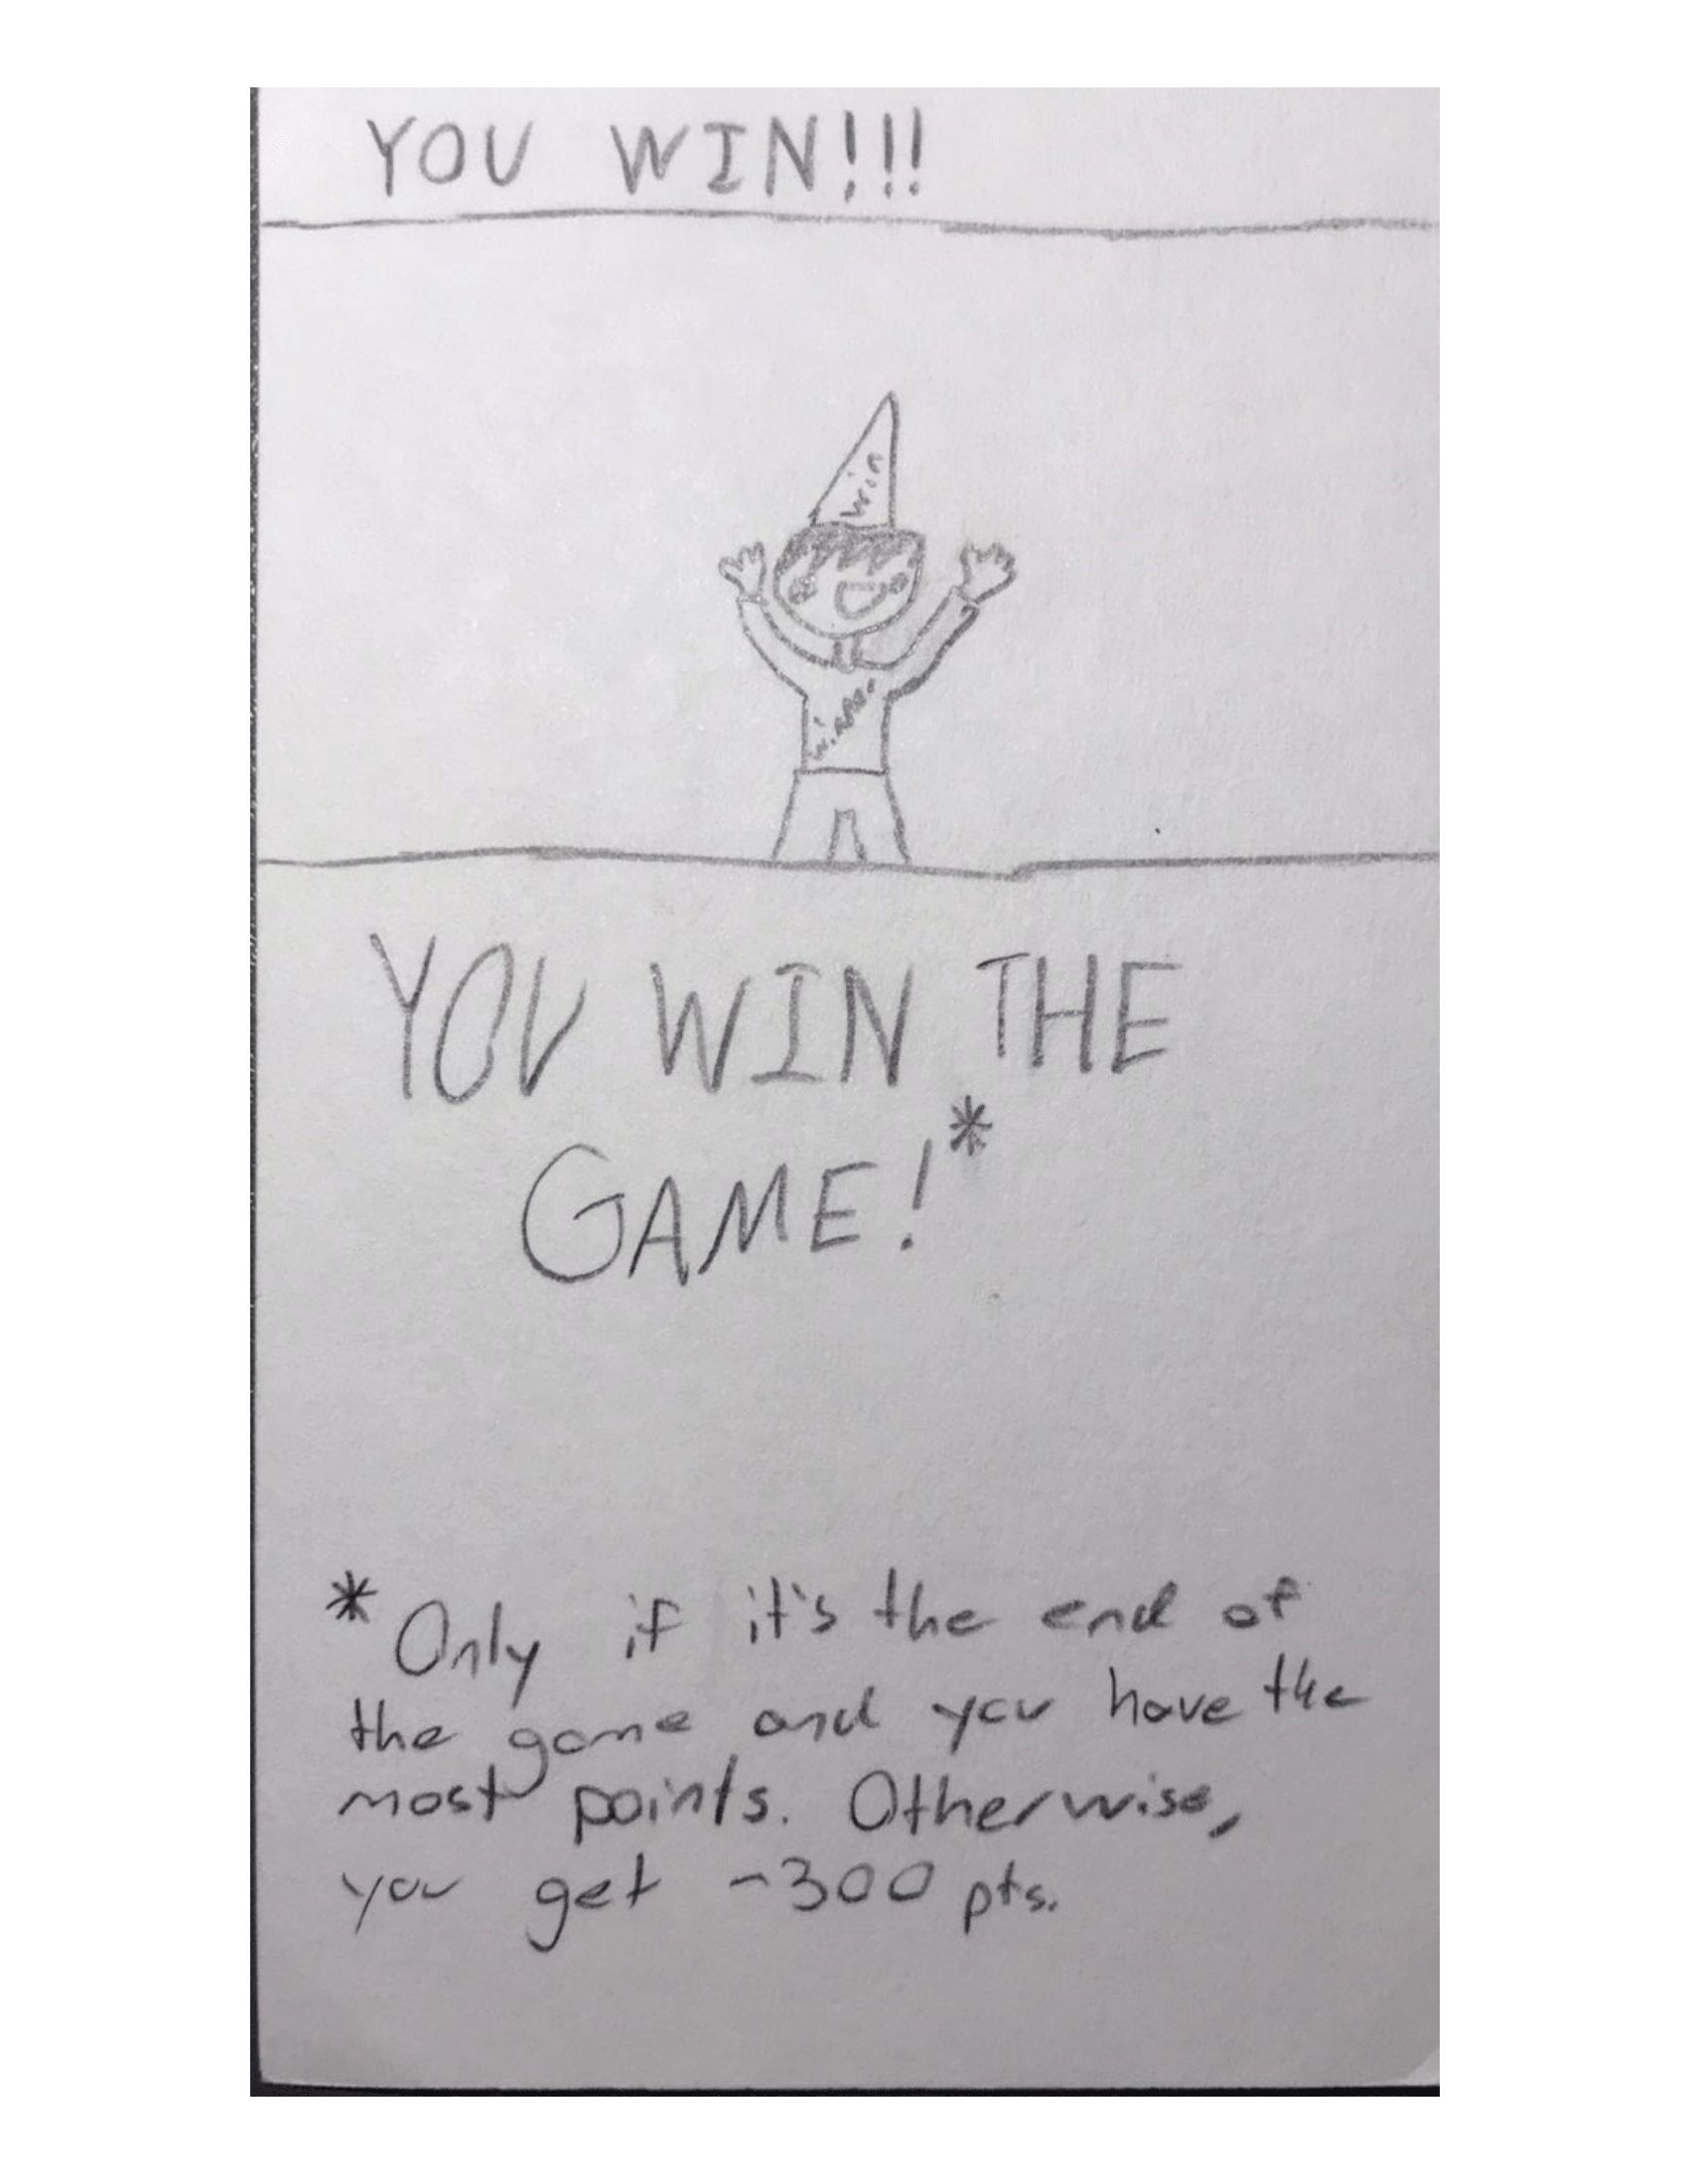 YOU WIN!!!
win
winner
YOU WIN THE
GAME!*
*Only if it's the end of
the game and you have the
most points. Otherwise,
you get -300 pts.